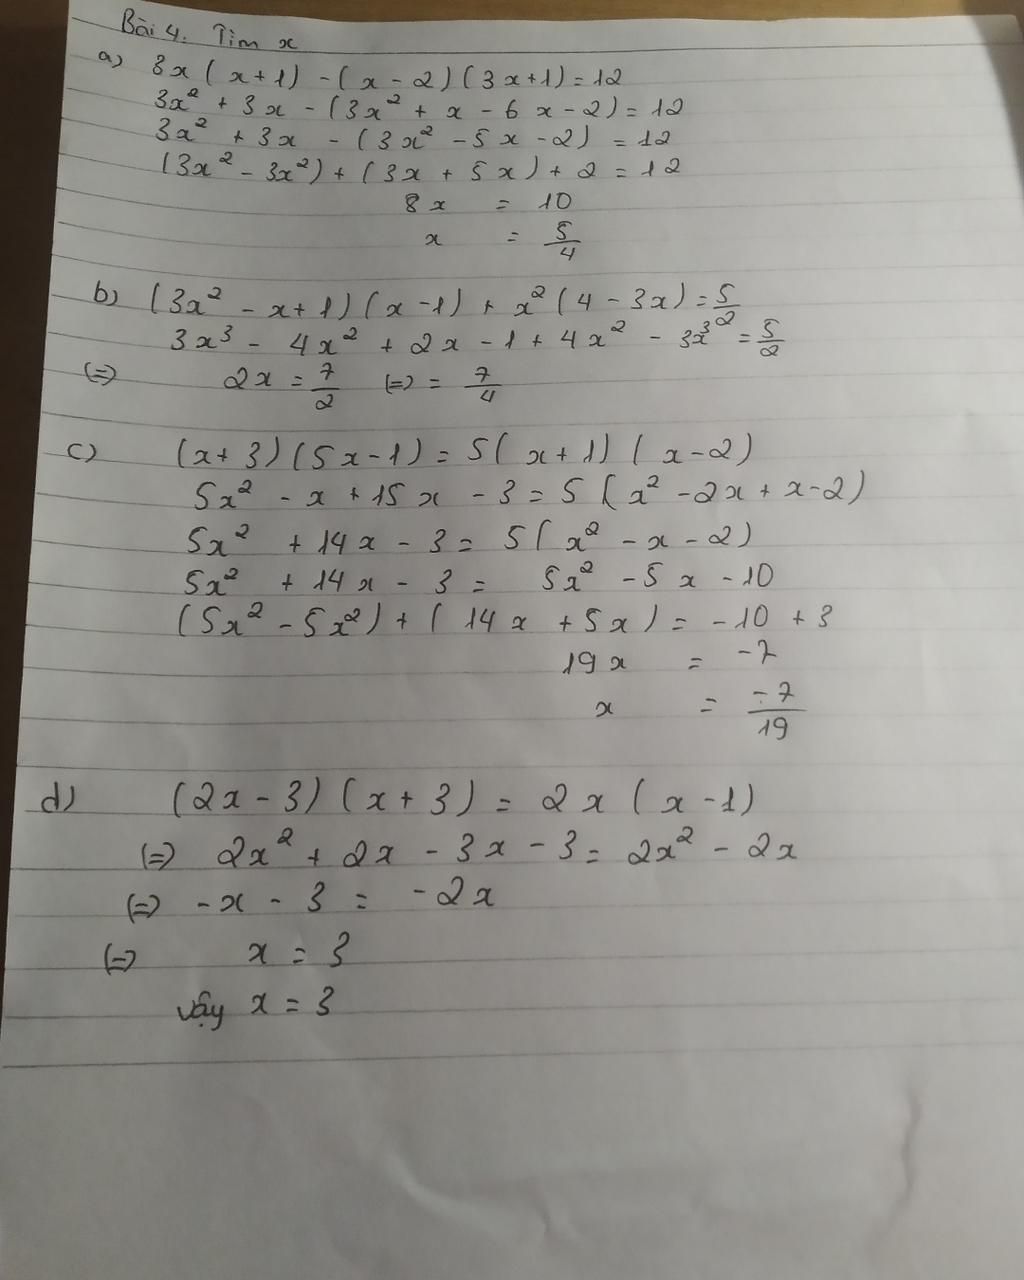 Bài 4. Tìm x
a) 3x(x+1) - (x-2)(3x+1) = 12
3x² + 3x - (3x² + x - 6x - 2) = 12
3x² + 3x - (3x² - 5x - 2) = 12
(3x² - 3x²) + (3x + 5x) + 2 = 12
8x = 10
x = 5/4
b) (3x² - x + 1)(x - 1) + x²(4 - 3x) = 5/2
3x³ - 4x² + 2x - 1 + 4x² - 3x³ = 5/2
(=) 2x = 7/2 (=) = 7/4
c) (x+3)(5x-1) = 5(x+1)(x-2)
5x² - x + 15x - 3 = 5(x² - 2x + x - 2)
5x² + 14x - 3 = 5(x² - x - 2)
5x² + 14x - 3 = 5x² - 5x - 10
(5x² - 5x²) + (14x + 5x) = -10 + 3
19x = -7
x = -7/19
d) (2x - 3)(x + 3) = 2x(x - 1)
(=) 2x² + 2x - 3x - 3 = 2x² - 2x
(=) -x - 3 = -2x
(=) x = 3
vậy x = 3